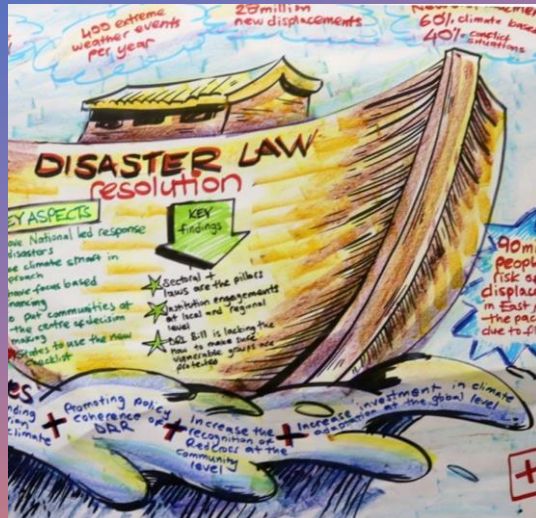 400 extreme
weather events
per year
25 million
new displacements
60% climate based
40% conflict
situations
DISASTER LAW
resolution
KEY ASPECTS
National led response
disasters
climate smart in
focus based
to put communities at
the centre of decision
making
States to use the new
checklist
KEY
findings
Sectoral +
laws are the pillars
Institution engagements
at local and regional
level
DRR Bill is lacking the
how to make sure
vulnerable groups are
protected
risk of
displace
in East
the pac
due to fl
climate
+ Promoting policy
coherence of
DRR
+ Increase the
recognition of
Red Cross at the
community
level
+ Increase investment in climate
adaptation at the global level